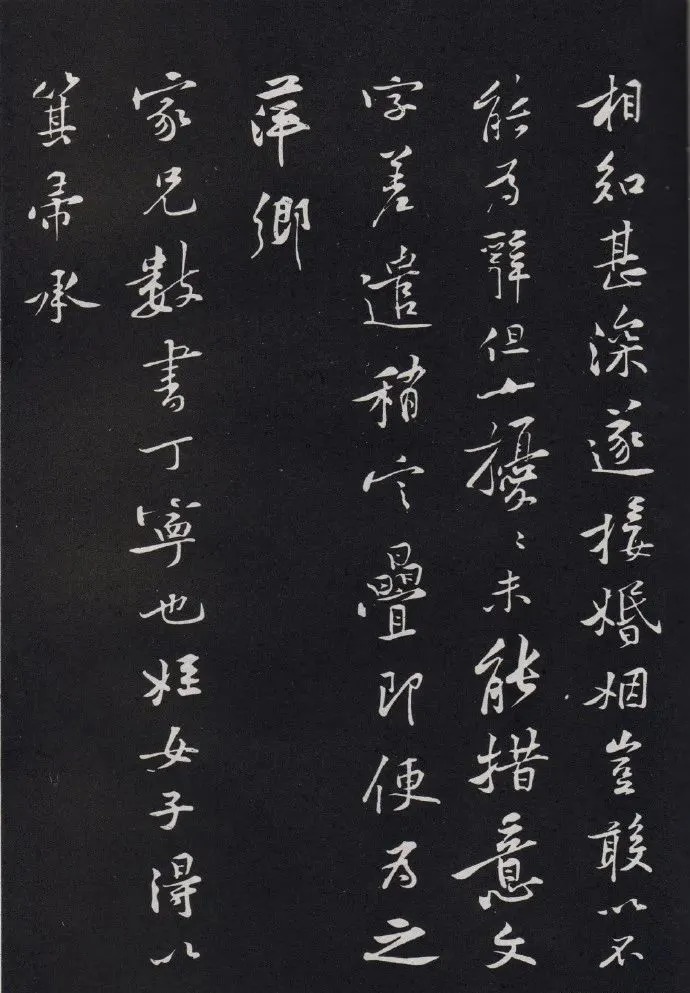 相知甚深遂接婚姻豈敢以不
能為辭但公擾〻未能措意文
字差遣稍定疊即便為之
萍鄉
家兄數書丁寧也姪女子得以
箕帚承